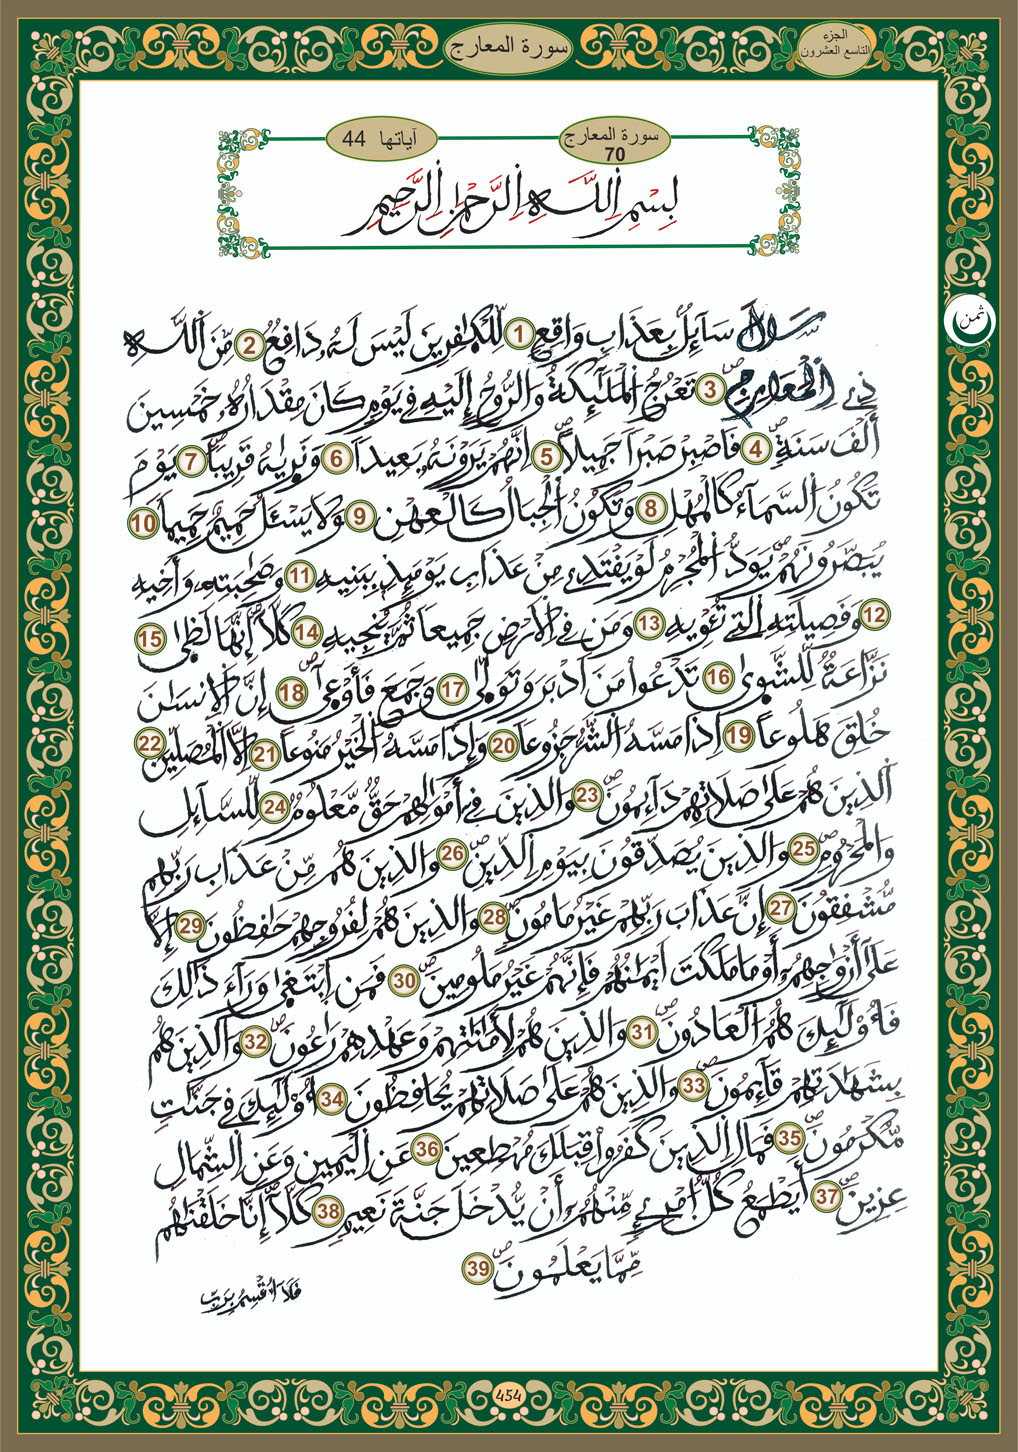 الجزء
التاسع العشرون
سورة المعارج
سورة المعارج
70
آياتها 44
بِسْمِ اِللَّهِ اِلرَّحْمَٰنِ اِلرَّحِيمِ
ثمن
سَالَ سَآئِلُۢ بِعَذَابٖ وَاقِعٖ 1 لِّلْكٰ۪فِرِينَ لَيْسَ لَهُۥ دَافِعٞ 2 مِّنَ اَللَّهِ
ذِے اِلْمَعَارِجِ 3 تَعْرُجُ اُلْمَلَٰٓئِكَةُ وَالرُّوحُ إِلَيْهِ فِے يَوْمٖ كَانَ مِقْدَارُهُۥ خَمْسِينَ
أَلْفَ سَنَةٖ 4 فَاصْبِرْ صَبْراٗ جَمِيلاً 5 اِنَّهُمْ يَرَوْنَهُۥ بَعِيداٗ 6 وَنَر۪يٰهُ قَرِيباٗ 7 يَوْمَ
تَكُونُ اُلسَّمَآءُ كَالْمُهْلِ 8 وَتَكُونُ اُلْجِبَالُ كَالْعِهْنِ 9 وَلَا يَسْـَٔلُ حَمِيمٌ حَمِيماٗ 10
يُبَصَّرُونَهُمْ يَوَدُّ اُلْمُجْرِمُ لَوْ يَفْتَدِے مِنْ عَذَابِ يَوْمَئِذِۢ بِبَنِيهِ 11 وَصَٰحِبَتِهِۦ وَأَخِيهِ
12 وَفَصِيلَتِهِ اِلتِے تُـْٔوِيهِ 13 وَمَن فِے اِلَارْضِ جَمِيعاٗ ثُمَّ يُنجِيهِ 14 كَلَّآ إِنَّهَا لَظ۪يٰ 15
نَزَّاعَةٞ لِّلشَّو۪يٰ 16 تَدْعُواْ مَنَ اَدْبَرَ وَتَوَلّ۪يٰ 17 وَجَمَعَ فَأَوْع۪يٰٓ 18 إِنَّ اَلِانسَٰنَ
خُلِقَ هَلُوعاً 19 اِذَا مَسَّهُ اُلشَّرُّ جَزُوعاٗ 20 وَإِذَا مَسَّهُ اُلْخَيْرُ مَنُوعاً 21 اِلَّا اَلْمُصَلِّينَ 22
اَلذِينَ هُمْ عَلَيٰ صَلَاتِهِمْ دَآئِمُونَ 23 وَالذِينَ فِے أَمْوَٰلِهِمْ حَقّٞ مَّعْلُومٞ 24 لِّلسَّآئِلِ
وَالْمَحْرُومِ 25 وَالذِينَ يُصَدِّقُونَ بِيَوْمِ اِلدِّينِ 26 وَالذِينَ هُم مِّنْ عَذَابِ رَبِّهِم
مُّشْفِقُونَ 27 إِنَّ عَذَابَ رَبِّهِمْ غَيْرُ مَامُونٖ 28 وَالذِينَ هُمْ لِفُرُوجِهِمْ حَٰفِظُونَ 29 إِلَّا
عَلَيٰٓ أَزْوَٰجِهِمُۥٓ أَوْ مَا مَلَكَتَ اَيْمَٰنُهُمْ فَإِنَّهُمْ غَيْرُ مَلُومِينَ 30 فَمَنِ اِبْتَغ۪يٰ وَرَآءَ ذَٰلِكَ
فَأُوْلَٰٓئِكَ هُمُ اُلْعَادُونَ 31 وَالذِينَ هُمْ لِأَمَٰنَٰتِهِمْ وَعَهْدِهِمْ رَٰعُونَ 32 وَالذِينَ هُم
بِشَهَٰدَتِهِمْ قَآئِمُونَ 33 وَالذِينَ هُمْ عَلَيٰ صَلَاتِهِمْ يُحَافِظُونَ 34 أُوْلَٰٓئِكَ فِے جَنَّٰتٖ
مُّكْرَمُونَ 35 فَمَالِ اِلذِينَ كَفَرُواْ قِبَلَكَ مُهْطِعِينَ 36 عَنِ اِلْيَمِينِ وَعَنِ اِلشِّمَالِ
عِزِينَ 37 أَيَطْمَعُ كُلُّ اُمْرِےٕٖ مِّنْهُمُۥٓ أَنْ يُّدْخَلَ جَنَّةَ نَعِيمٖ 38 كَلَّآ إِنَّا خَلَقْنَٰهُم
مِّمَّا يَعْلَمُونَ 39
فَلَآ أُقْسِمُ بِرَبِّ
454